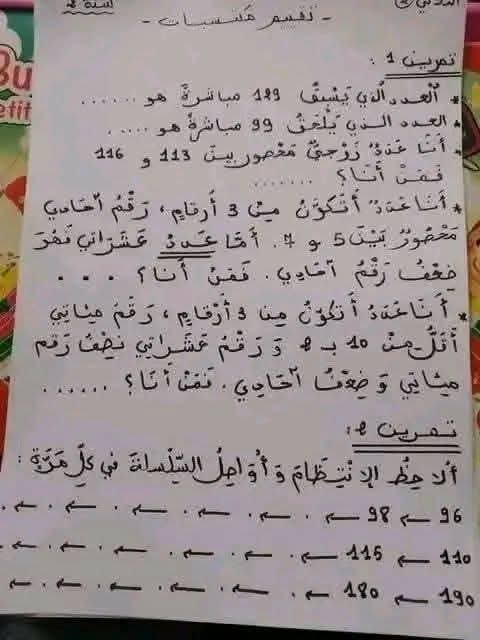 الثلاثي ②
سنة 2
- تقييم مكتسبات -
تمرين 1 :
* العدد الذي يَسْبِقُ 189 مباشرةً هو ......
* العدد الذي يَلْحَقُ 99 مباشرةً هو .....
* أنَا عَدَدٌ زَوْجِيٌّ مَحْصُورٌ بينَ 113 و 116
فَمَنْ أنَا؟ .......
* أنَا عَدَدٌ أتَكَوَّنُ مِنْ 3 أرقامٍ، رَقْمُ آحَادِي
مَحْصُورٌ بَيْنَ 5 و 7. أمَّا عَدَدُ عَشَرَاتِي فَهُوَ
ضِعْفُ رَقْمُ آحَادِي. فَمَنْ أنَا؟ ....
* أنَا عَدَدٌ أتَكَوَّنُ مِنْ 3 أرْقَامٍ، رَقْمُ مِئَاتِي
أقَلُّ مِنْ 10 بـ 2 وَ رَقْمُ عَشَرَاتِي نِصْفُ رَقْمِ
مِئَاتِي وَ ضِعْفُ آحَادِي. فَمَنْ أنَا؟ ......
تمرين 2 :
ألاحِظُ الإنْتِظَامَ وَ أُوَاصِلُ السِّلْسِلَةَ فِي كُلِّ مَرَّةٍ :
96 ← 98 ← . ← . ← . ← . ← . ← .
110 ← 115 ← . ← . ← . ← . ← . ←
190 ← 180 ← . ← . ← . ← . ← . ←